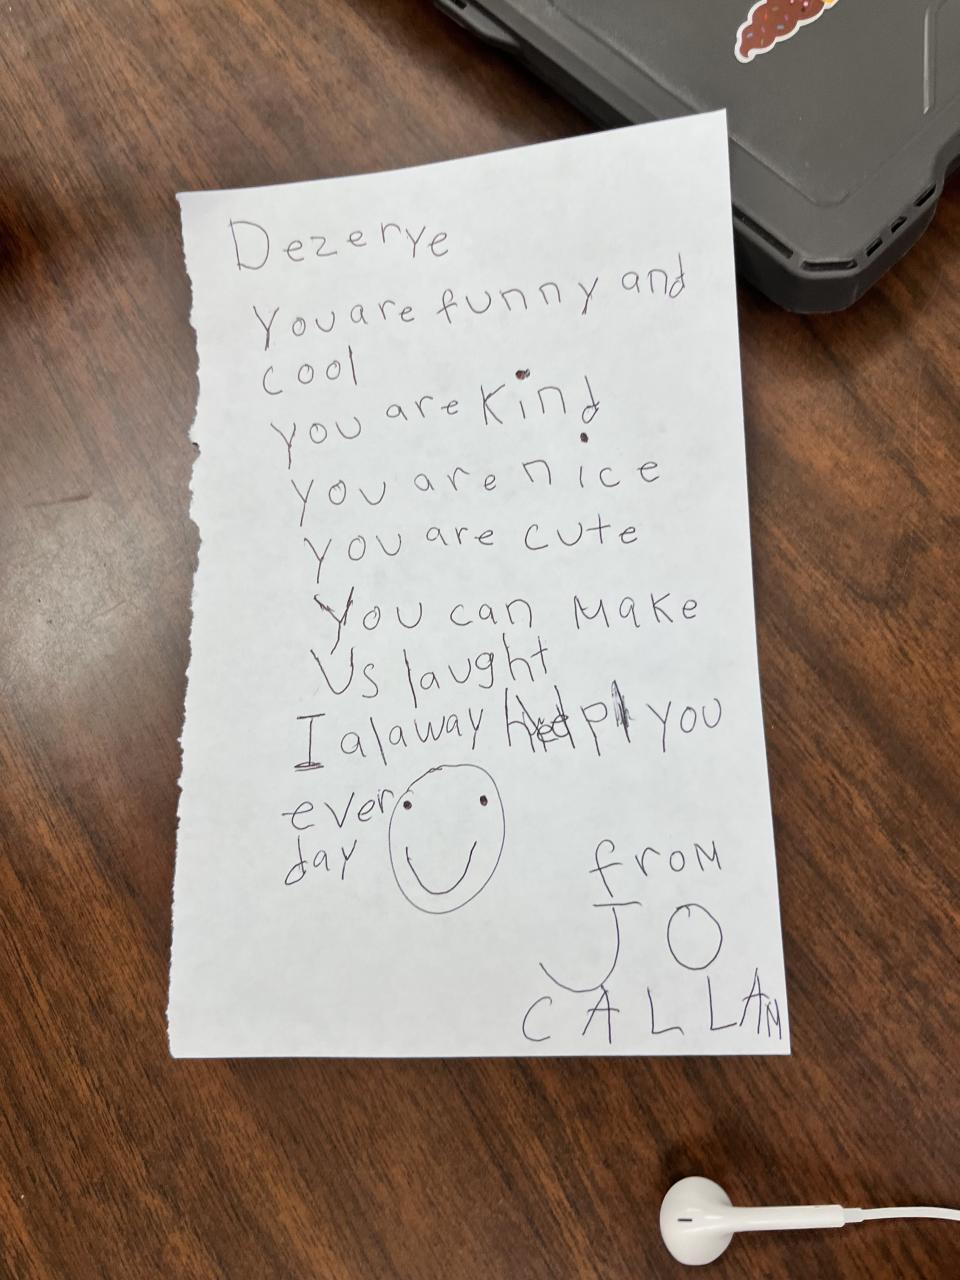 Dezerye
You are funny and
cool
you are kind
you are nice
you are cute
You can make
Us laught
I alaway help you
ever
day
from
JO
CALLAN